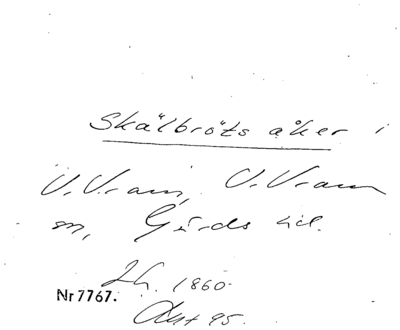 Skälbröts åker i
V. Vram, V. Vram
sn, Gärds hd.
Lh. 1860.
Nr 7767.
Akt 95.